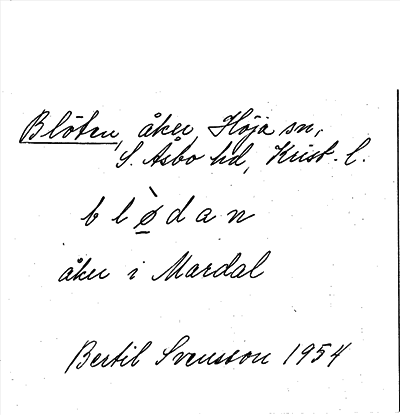 Blöten, åker, Höja sn,
S. Åsbo hd, Krist. l.
b l ø̠̀ d a n
åker i Mardal
Bertil Svensson 1954